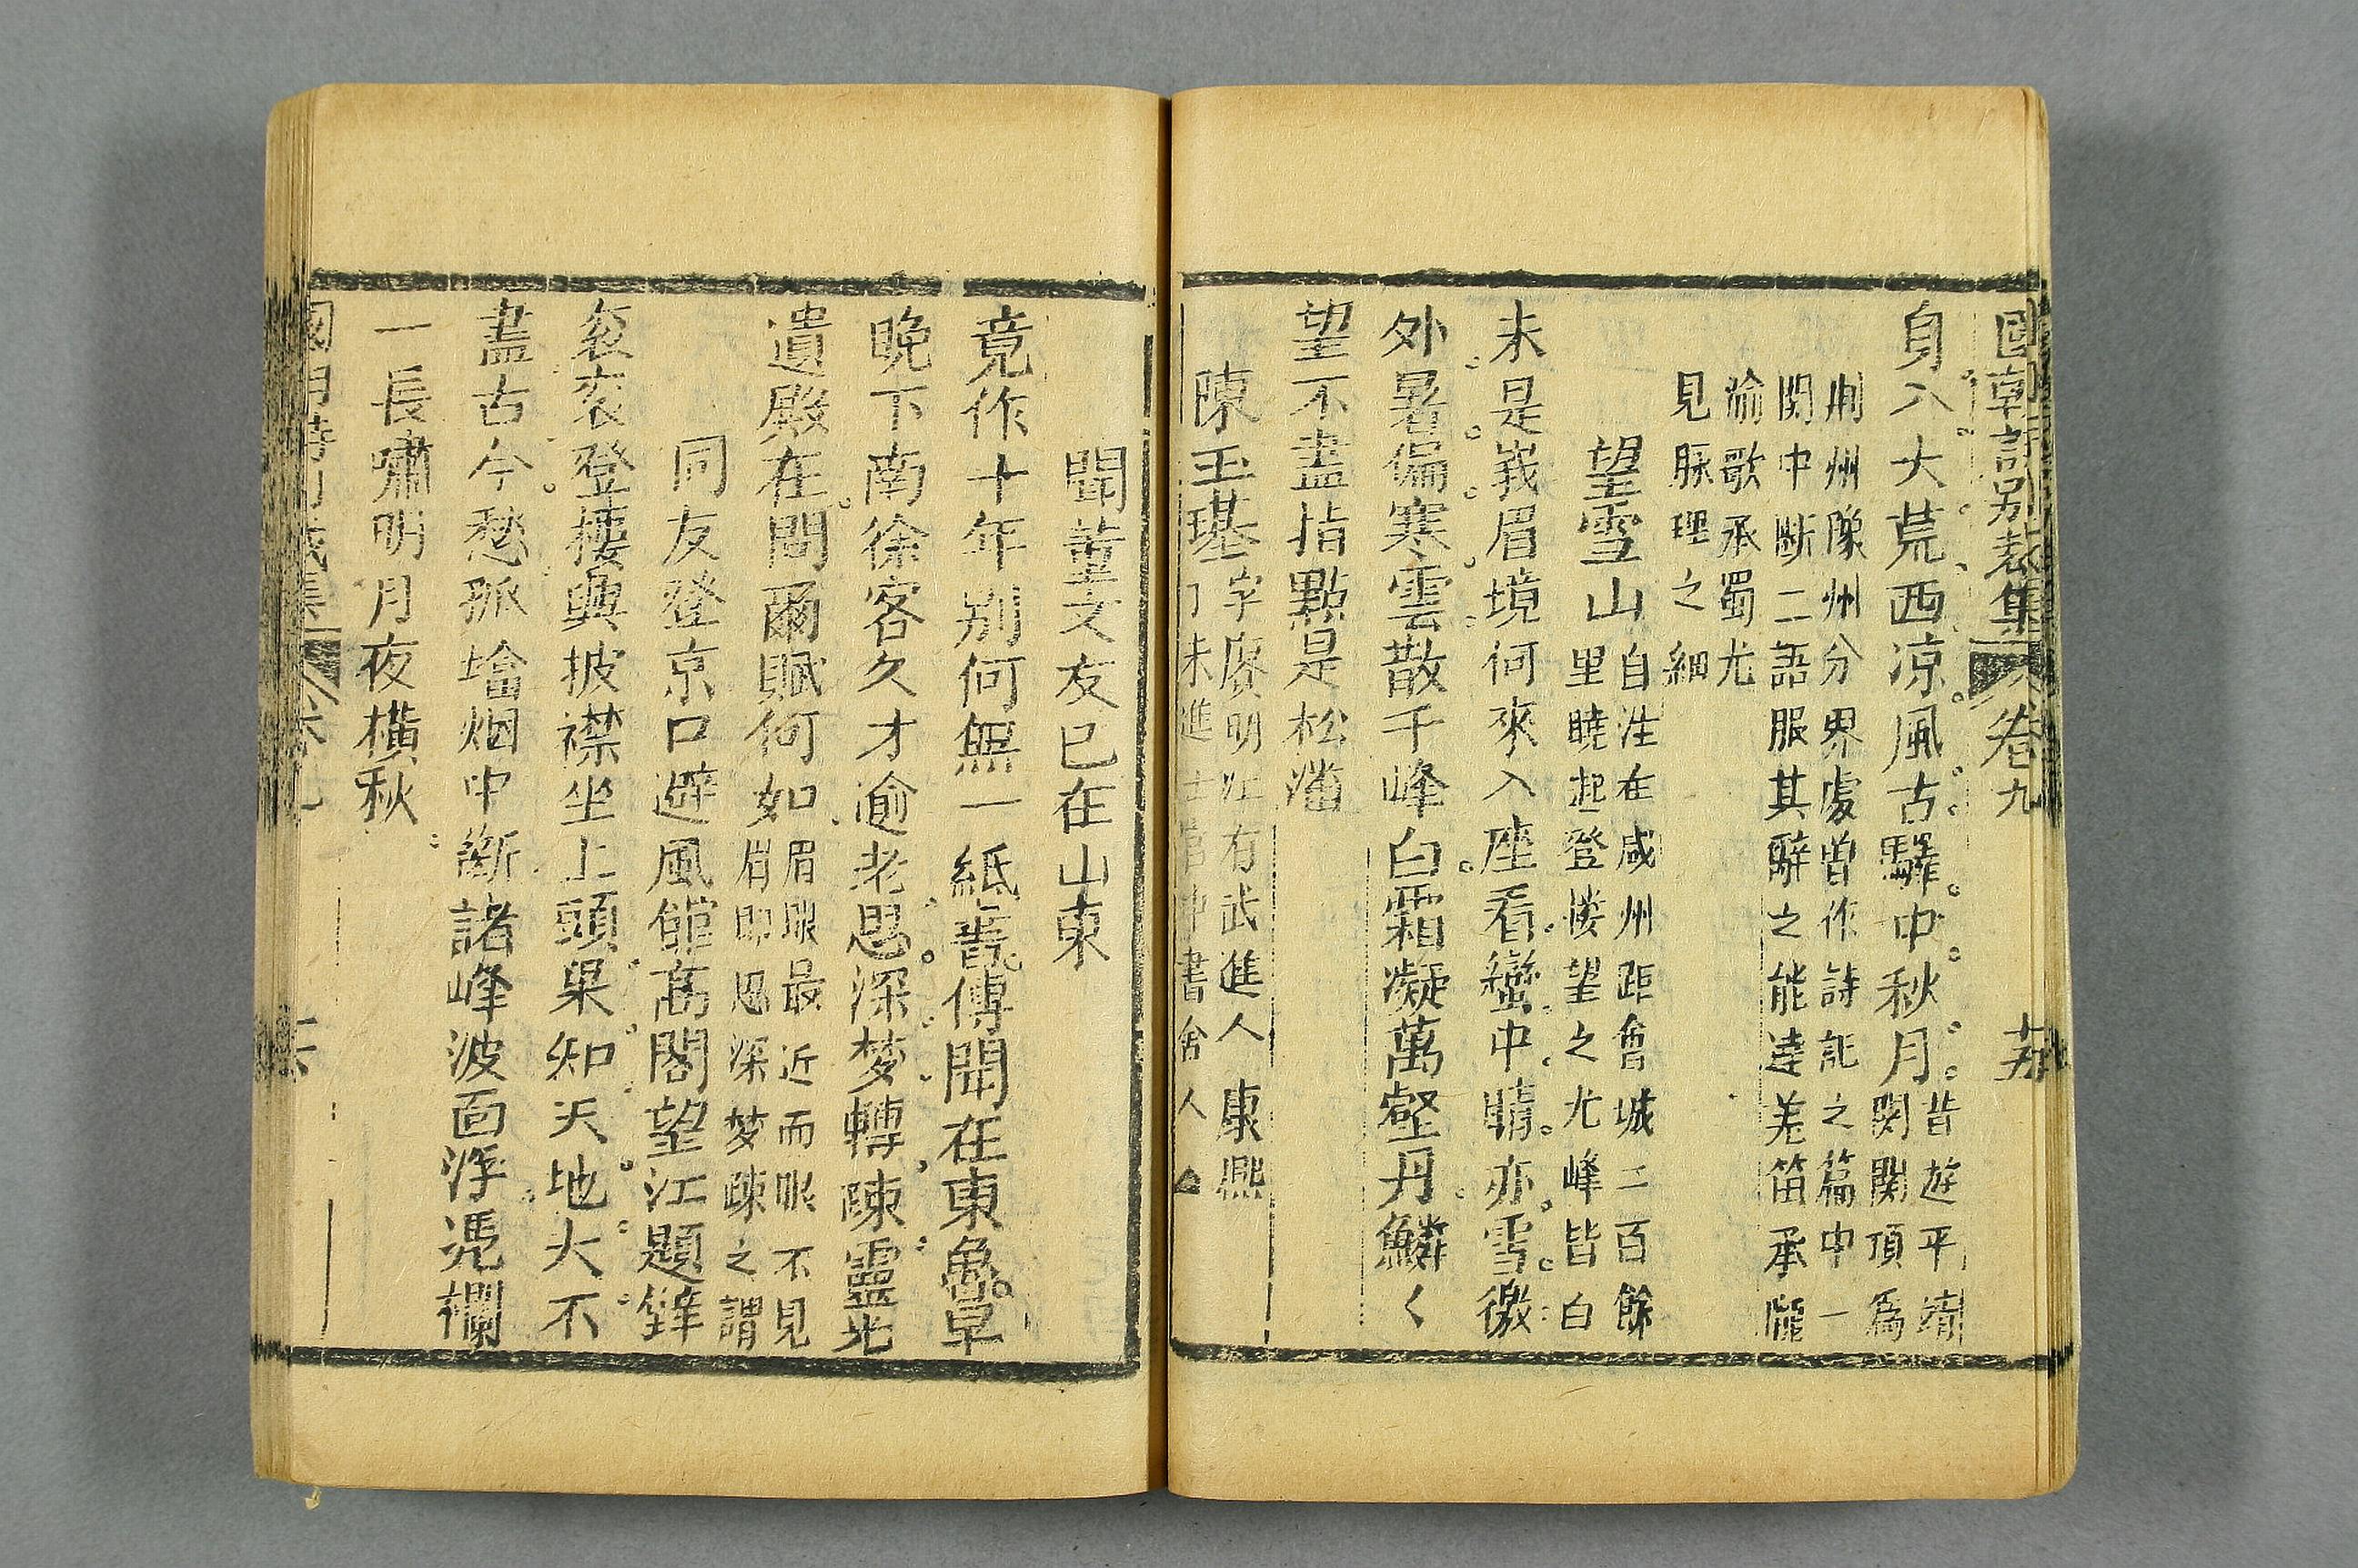 國朝詩別裁集 卷九 十五
身入大荒西凉風古驛中秋月昔遊平靖
関関頂為
荊州豫州分界處曽作詩記之篇中一
関中斷二語服其辭之能達羌笛承隴
渝歌承蜀尤
見脉理之細
望雪山自注在咸州距會城二百餘
里曉起登楼望之尤峰皆白
未是峩眉境何來入座看蠻中晴亦雪徼
外暑偏寒雲散千峰白霜凝萬壑丹鱗く
望不盡指點是松潘
陳玉璂字賡明江有武進人康熙
丁未進士官中書舍人
聞董文友已在山東
竟作十年别何無一紙書傳聞在東魯早
晚下南徐客久才逾老思深梦轉陳靈光
遺殿在問爾賦何如眉眼最近而眼不見
眉即思深梦疎之謂
同友登京口避風館髙閣望江題鋒
衮衮登樓興披襟坐上頭果知天地大不
盡古今愁孤墖烟中斷諸峰波面浮憑欄
一長嘯明月夜横秋